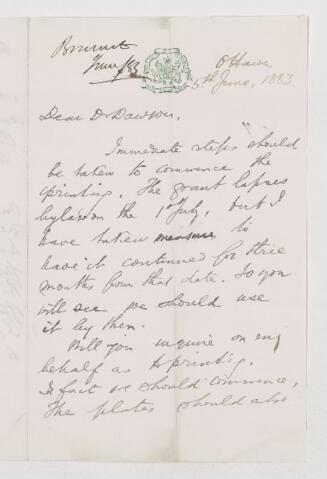 Bourinot
June /83
Ottawa
5th June, 1883
Dear Dr Dawson,
Immediate steps should
be taken to commence the
printing. The grant lapses
by law on the 1st July, but I
have taken measures to
have it continued for three
months from that date. So you
will see we should use
it by then.
Will you inquire on my
behalf as to printing.
In fact we should commence.
The plates should also